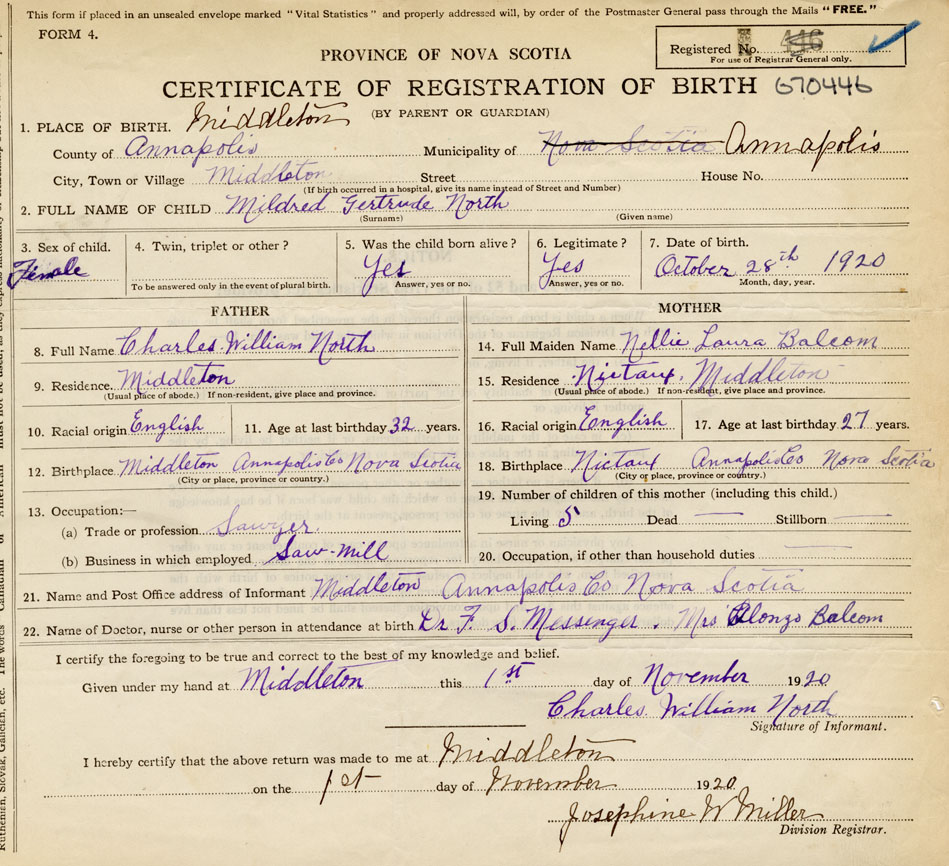 This form if placed in an unsealed envelope marked "Vital Statistics" and properly addressed will, by order of the Postmaster General pass through the Mails "FREE."
FORM 4.
Registered No. 446
For use of Registrar General only.
PROVINCE OF NOVA SCOTIA
CERTIFICATE OF REGISTRATION OF BIRTH 670446
(BY PARENT OR GUARDIAN)
1. PLACE OF BIRTH. Middleton
County of Annapolis Municipality of Nova Scotia Annapolis
City, Town or Village Middleton Street House No.
(If birth occurred in a hospital, give its name instead of Street and Number)
2. FULL NAME OF CHILD Mildred Gertrude North
(Surname) (Given name)
3. Sex of child. 4. Twin, triplet or other? 5. Was the child born alive? 6. Legitimate? 7. Date of birth.
Female Yes Yes October 28th 1920
To be answered only in the event of plural birth. Answer, yes or no. Answer, yes or no. Month, day, year.
FATHER
8. Full Name Charles William North
9. Residence. Middleton
(Usual place of abode.) If non-resident, give place and province.
10. Racial origin English 11. Age at last birthday 32 years.
12. Birthplace Middleton Annapolis Co Nova Scotia
(City or place, province or country.)
13. Occupation:—
(a) Trade or profession Sawyer.
(b) Business in which employed Saw-Mill
MOTHER
14. Full Maiden Name Nellie Laura Balcom
15. Residence Nictaux, Middleton
(Usual place of abode.) If non-resident, give place and province.
16. Racial origin English 17. Age at last birthday 27 years.
18. Birthplace Nictaux Annapolis Co Nova Scotia
(City or place, province or country.)
19. Number of children of this mother (including this child.)
Living 5 Dead — Stillborn —
20. Occupation, if other than household duties —
21. Name and Post Office address of Informant Middleton Annapolis Co Nova Scotia
22. Name of Doctor, nurse or other person in attendance at birth Dr F. S. Messenger. Mrs Alonzo Balcom
I certify the foregoing to be true and correct to the best of my knowledge and belief.
Given under my hand at Middleton this 1st day of November 1920
Charles William North
Signature of Informant.
I hereby certify that the above return was made to me at Middleton
on the 1st day of November 1920
Josephine W Miller
Division Registrar.